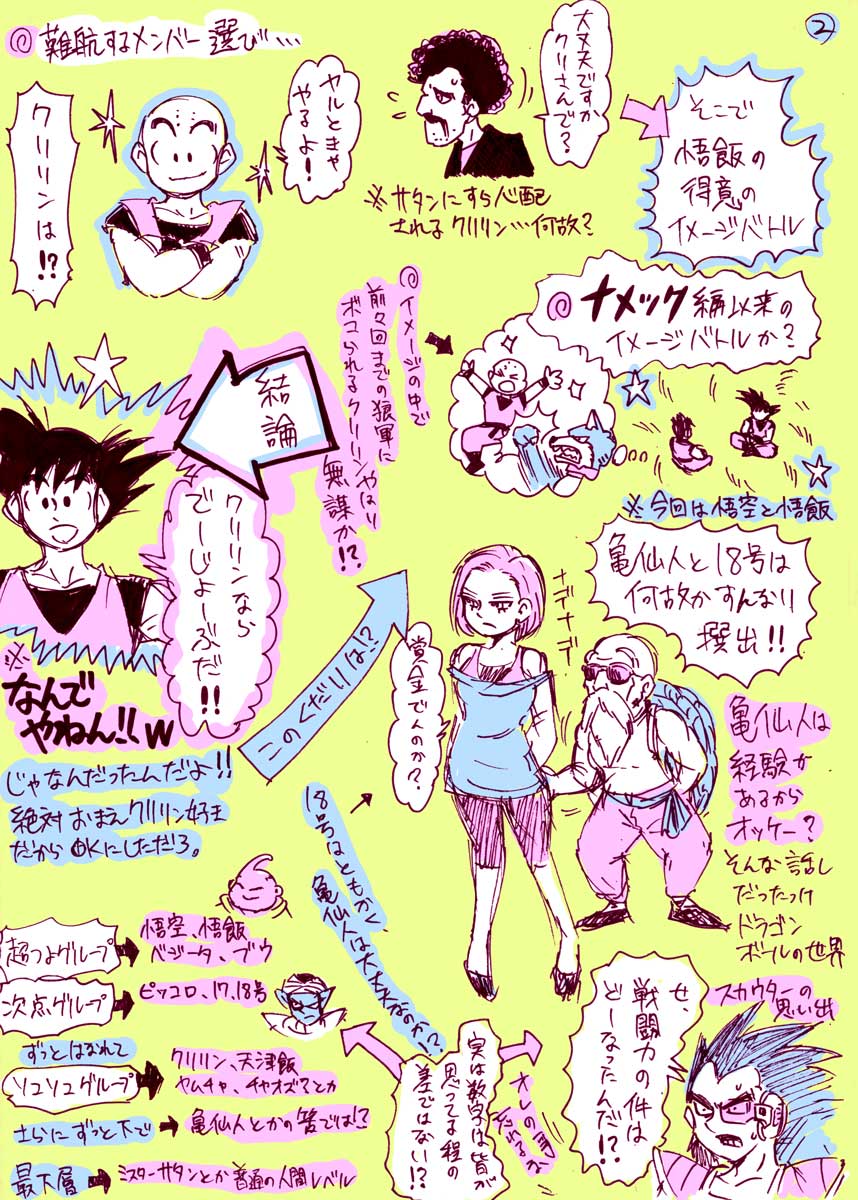 ②
難航するメンバー選び…
クリリンは!?
ヤルときゃ
やるよ!
大丈夫ですか
クリさんで?
※サタンにすら心配
されるクリリン…何故?
そこで
悟飯の
得意の
イメージバトル
ナメック編以来の
イメージバトルか?
※今回は悟空と悟飯
イメージの中で
前々回までの狼軍に
ボコられるクリリンやはり
無謀か!?
結論
クリリンなら
でーじょーぶだ!!
※
なんで
やねん!!w
このくだりは!?
じゃなんだったんだよ!!
絶対おまえクリリン好き
だからOKにしただろ。
亀仙人と18号は
何故かすんなり
選出!!
ナデナデ
賞金でんのか?
亀仙人は
経験が
あるから
オッケー?
そんな話し
だったっけ
ドラゴン
ボールの世界
18号はともかく
亀仙人は大丈夫なのか!?
超つよグループ
悟空、悟飯
ベジータ、ブウ
次点グループ
ピッコロ、17、18号
ずっとはなれて
ソコソコグループ
クリリン、天津飯
ヤムチャ、チャオズ?とか
さらにずっと下で
亀仙人とかの筈では!?
最下層
ミスターサタンとか普通の人間レベル
実は数字は皆が
思ってる程の
差ではない!?
せ、
戦闘力の件は
どーなったんだ!?
スカウターの
思い出